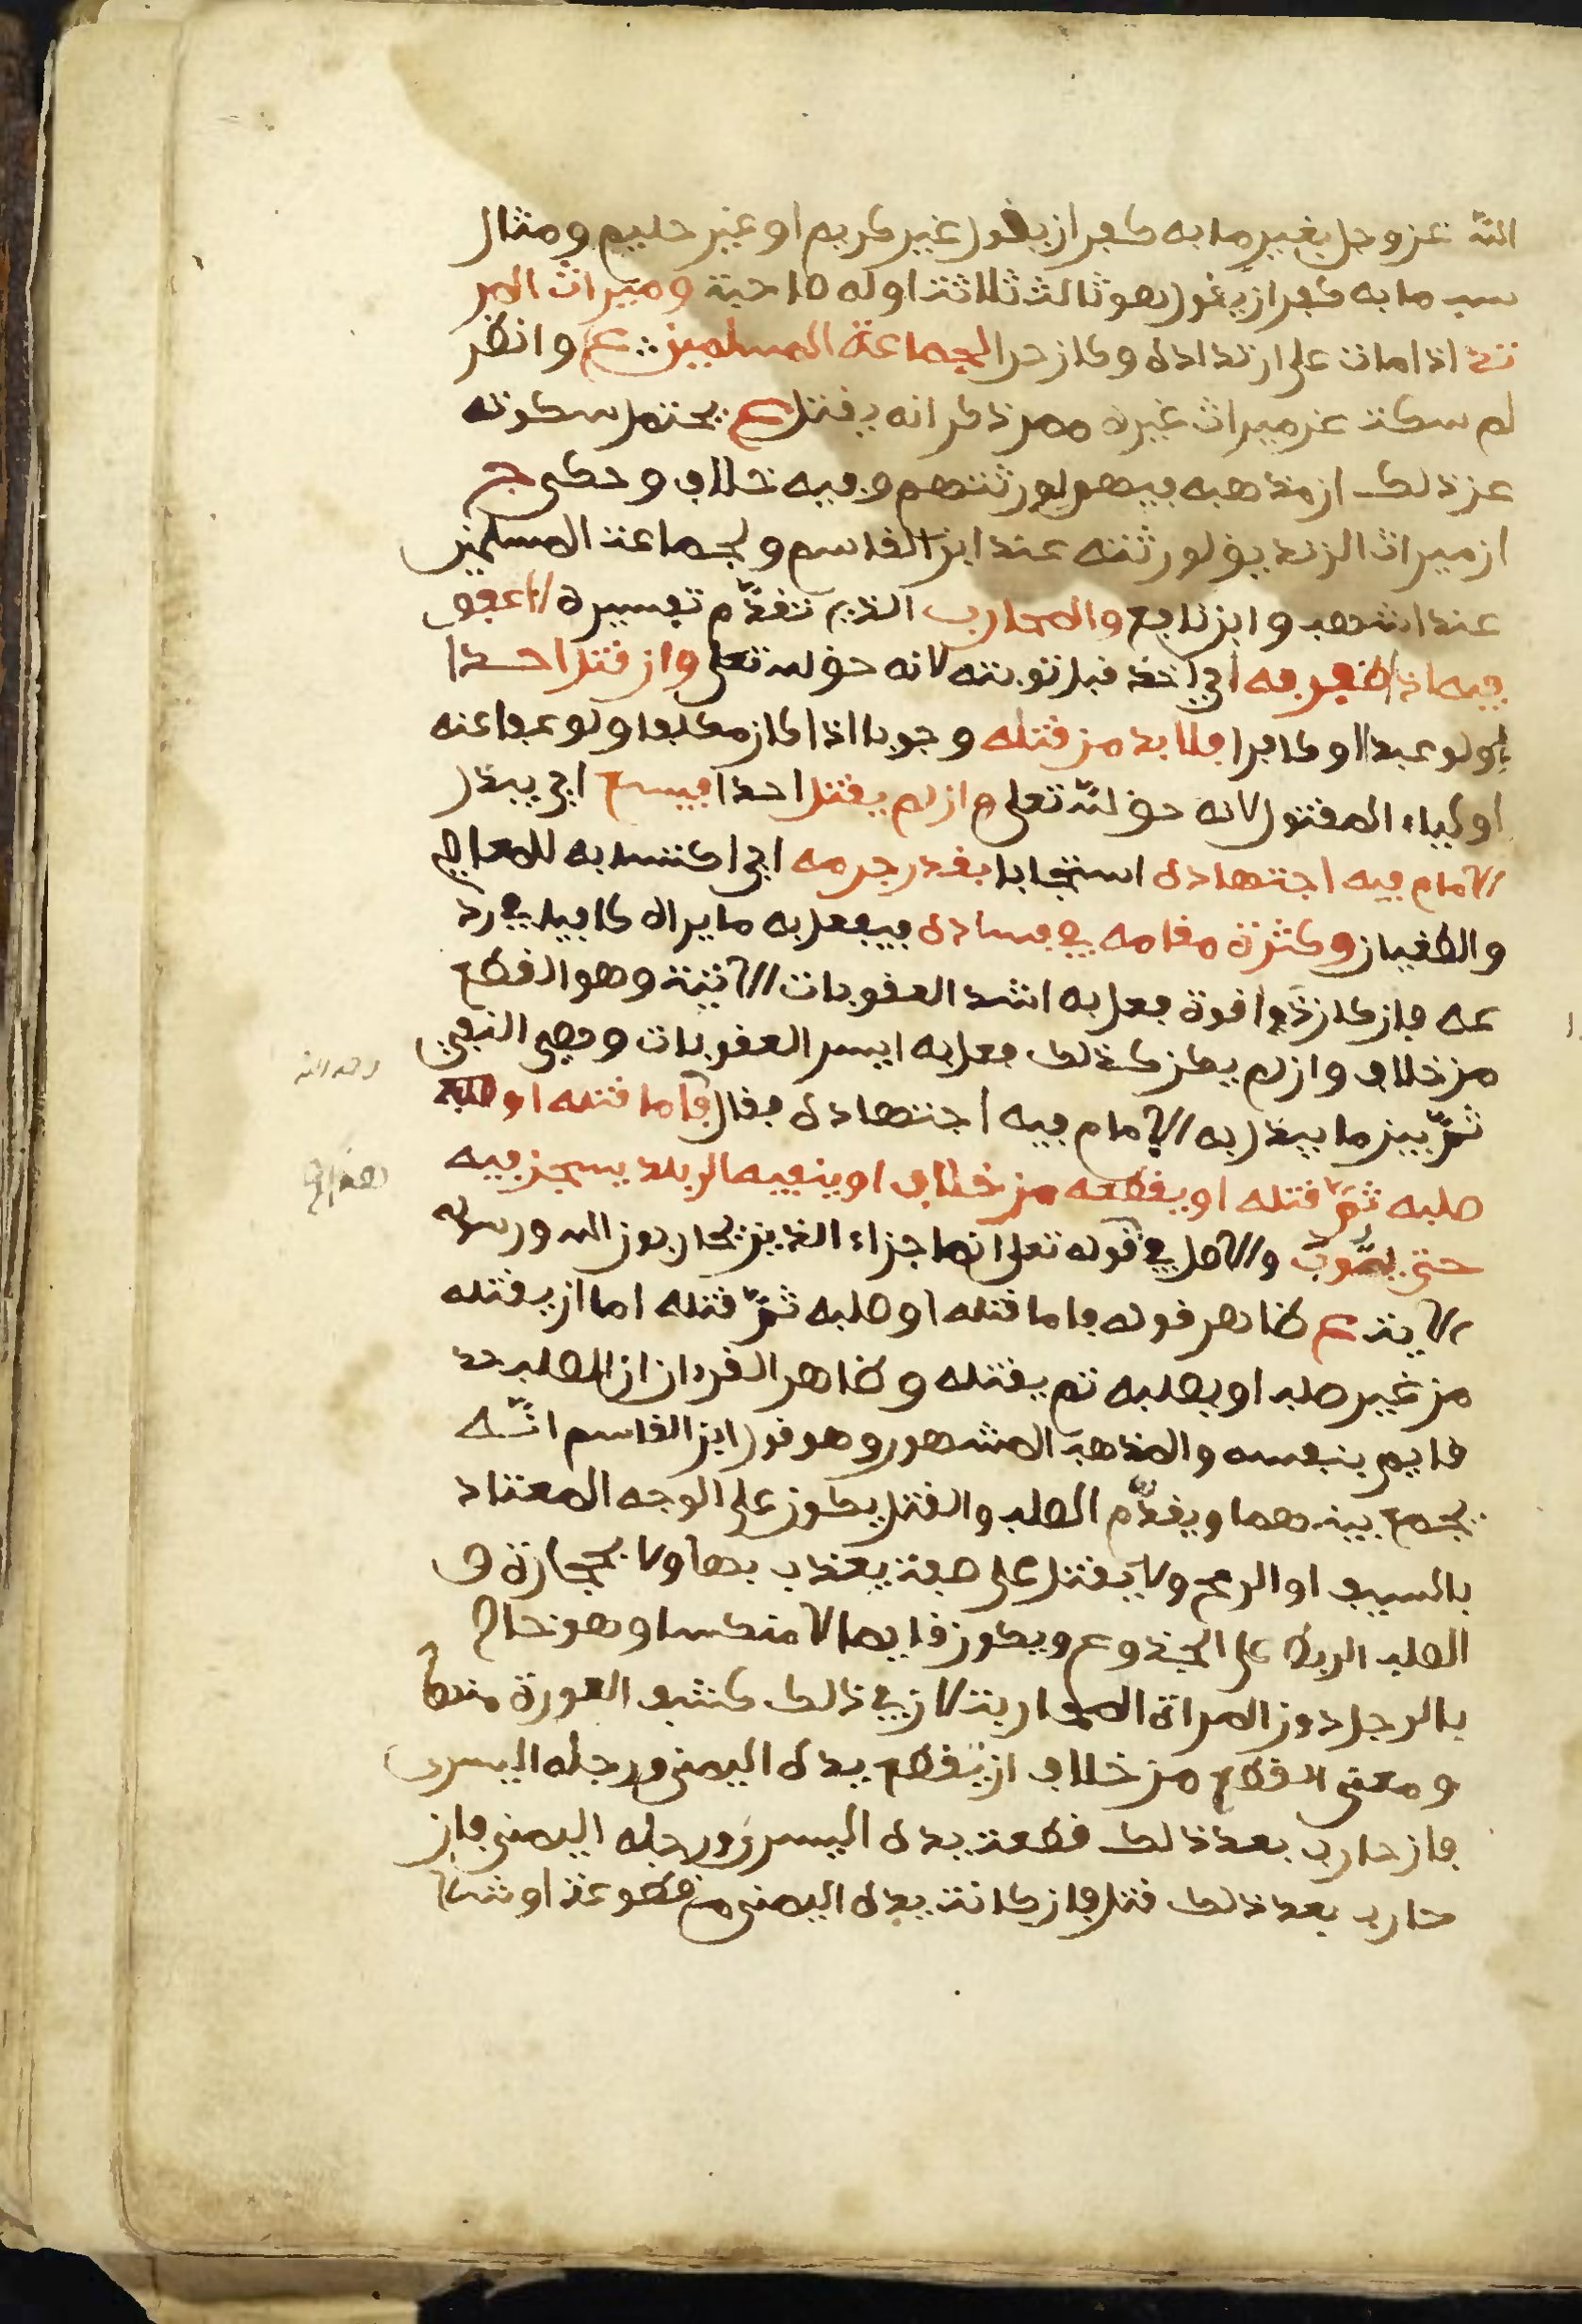 الله عز وجل بغير ما به كفر ان يقول غير كريم او غير حليم ومثال
سب ما به كفر ان يقول هو ثالث ثلاثة او له صاحبة وميراث المر
تد اذا مات على ارتداده وكان حرا لجماعة المسلمين ع وانظر
لم سكت عن ميراث غيره ممن ذكر انه يقتل ع يحتمل سكوته
عن ذلك ان مذهبه فيهم لورثتهم وفيه خلاف وحكى ج
ان ميراث الزنديق لورثته عند ابن القاسم ولجماعة المسلمين
عند اشهب وابن نافع والمحارب الذي تقدم تفسيره لا عفو
فيه اذا ظفر به اي اخذ قبل توبته لانه حق لله تعلى وان قتل احدا
ولو عبدا او كافرا فلا بد من قتله وجوبا اذا كان مكلفا ولو عفا عنه
اولياء المقتول لانه حق لله تعلى وان لم يقتل احدا فيسع اي يبذل
الامام فيه اجتهاده استحبابا بقدر جرمه اي اكتسابه للمعاصي
والطغيان وكثرة مقامه في فساده فيفعل به ما يراه كافيا في رد
عه فان كان ذوا قوة فعل به اشد العقوبات الاتية وهو القطع
من خلاف وان لم يكن كذلك فعل به ايسر العقوبات وهي النفي
ثم بين ما يبذل به الامام فيه اجتهاده فقال فاما قتله او صلبه
صلبه ثم قتله او يقطعه من خلاف او ينفيه الى بلد يسجن فيه
حتى يتوب والاصل في قوله تعلى انما جزاء الذين يحاربون الله ورسوله
الاية ع ظاهر قوله فاما قتله او صلبه ثم قتله اما ان يقتله
من غير صلب او يصلبه ثم يقتله وظاهر القرءان ان الصلب حد
قايم بنفسه والمذهب المشهور وهو قول ابن القاسم انه
يجمع بينهما ويقدم الصلب والقتل يكون على الوجه المعتاد
بالسيف او الرمح ولا يقتل على صفة يعذب بها ولا بحجارة و
الصلب الربط على الجذوع ويكون قايما لا منكسا وهو خاص
بالرجل دون المراة المحاربة لان في ذلك كشف العورة منها
ومعنى القطع من خلاف ان يقطع يده اليمنى ورجله اليسرى
فان حارب بعد ذلك قطعت يده اليسرى ورجله اليمنى فان
حارب بعد ذلك قتل فان كانت يده اليمنى مقطوعة او شلا